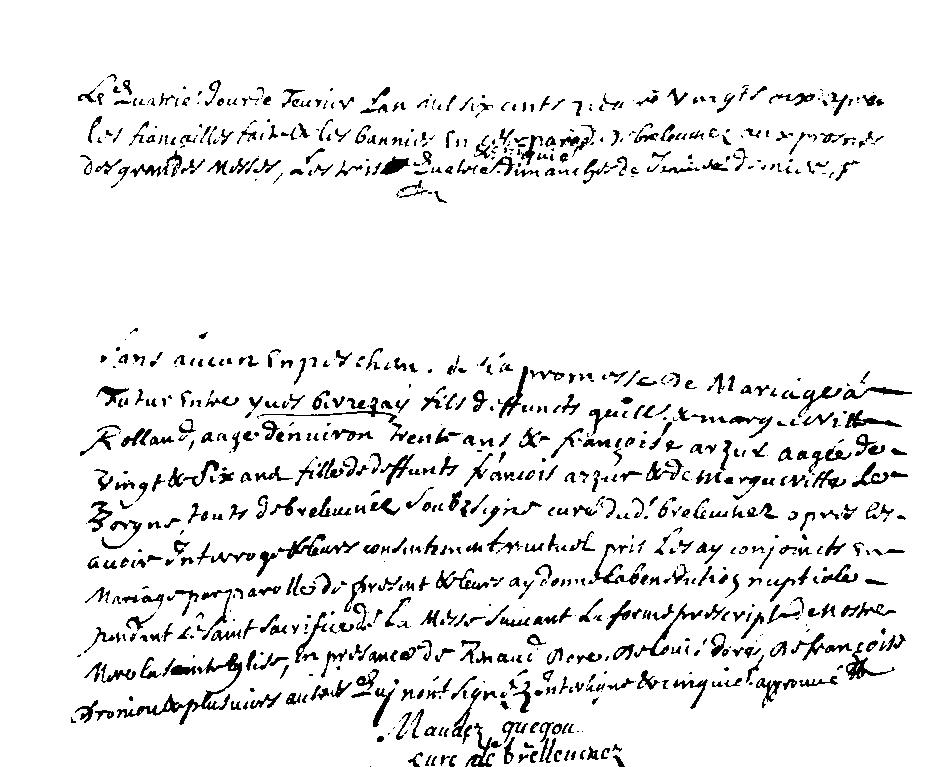 Le Quatrie. Jour de Feuvrier Lan mil six cents vingts apres
les fiançailles faites & les bannies En parod. de breleuenez aux prosnes
& cinquie.
des grandes Messes, Les trois Quatrie. dimanches de dernier,
Sans aucun Enpeschem. de la promesse De Mariage à
Futur Entre yues fils deffuncts quill. & margueritte
Rolland, aagé denuiron trente ans & françoise arzur aagée de
Vingt & Six ans fille de deffunts françois arzur & de Margueritte Le
touts de breleuenez Soubzsigné curé dud. breleuenez apres les
auoir Interrogé & leurs consentement mutuel pris Les ay conjoincts En
Mariage par parolle de present & leurs ay donné la benediction nuptiale
pendant Le Saint Sacrifice de La Messe Suiuant La forme prescripte de Nostre
Mere la Sainte Eglise, En presance de Renaud De Louis De françoise
& plusieurs autres Quj nont signé & cinquie. approuué
Maudez quegou
curé de brelleuenez